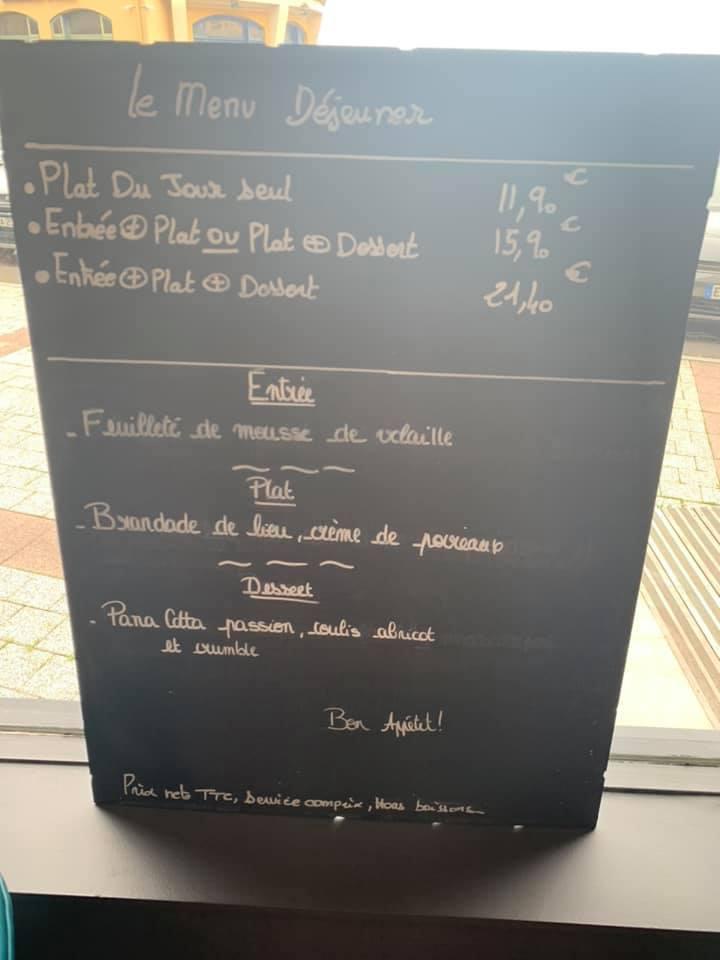 Le Menu Déjeuner
• Plat Du Jour seul 11,90 €
• Entrée + Plat ou Plat + Dessert 15,90 €
• Entrée + Plat + Dessert 21,40 €
Entrée
- Feuilleté de mousse de volaille
~ ~ ~
Plat
- Brandade de lieu, crème de poireaux
~ ~ ~
Dessert
- Pana Cotta passion, coulis abricot
et crumble
Bon Appétit!
Prix nets TTC, Service compris, Hors boissons